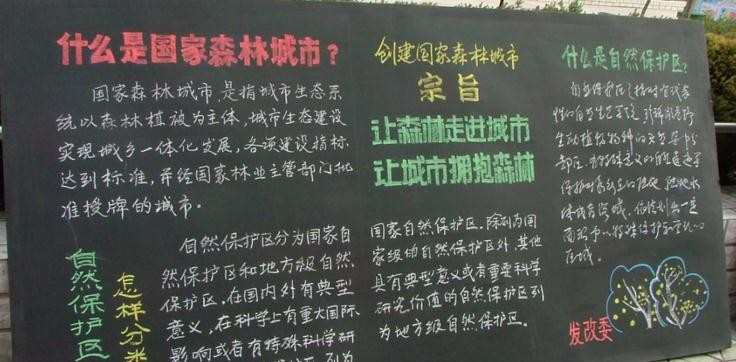 什么是国家森林城市？
国家森林城市，是指城市生态系
统以森林植被为主体，城市生态建设
实现城乡一体化发展，各项建设指标
达到标准，并经国家林业主管部门批
准授牌的城市。
自然保护区
怎样分类
自然保护区分为国家自
然保护区和地方级自然
保护区，在国内外有典型
意义，在科学上有重大国际
影响或者有特殊科学研
创建国家森林城市
宗旨
让森林走进城市
让城市拥抱森林
国家自然保护区，除列为国
家级的自然保护区外，其他
具有典型意义或有重要科学
研究价值的自然保护区列
为地方级自然保护区。
什么是自然保护区？
自然保护区是指对有代表
性的自然生态系统，珍稀濒危野
生动植物物种的天然集中分
区域。
发改委